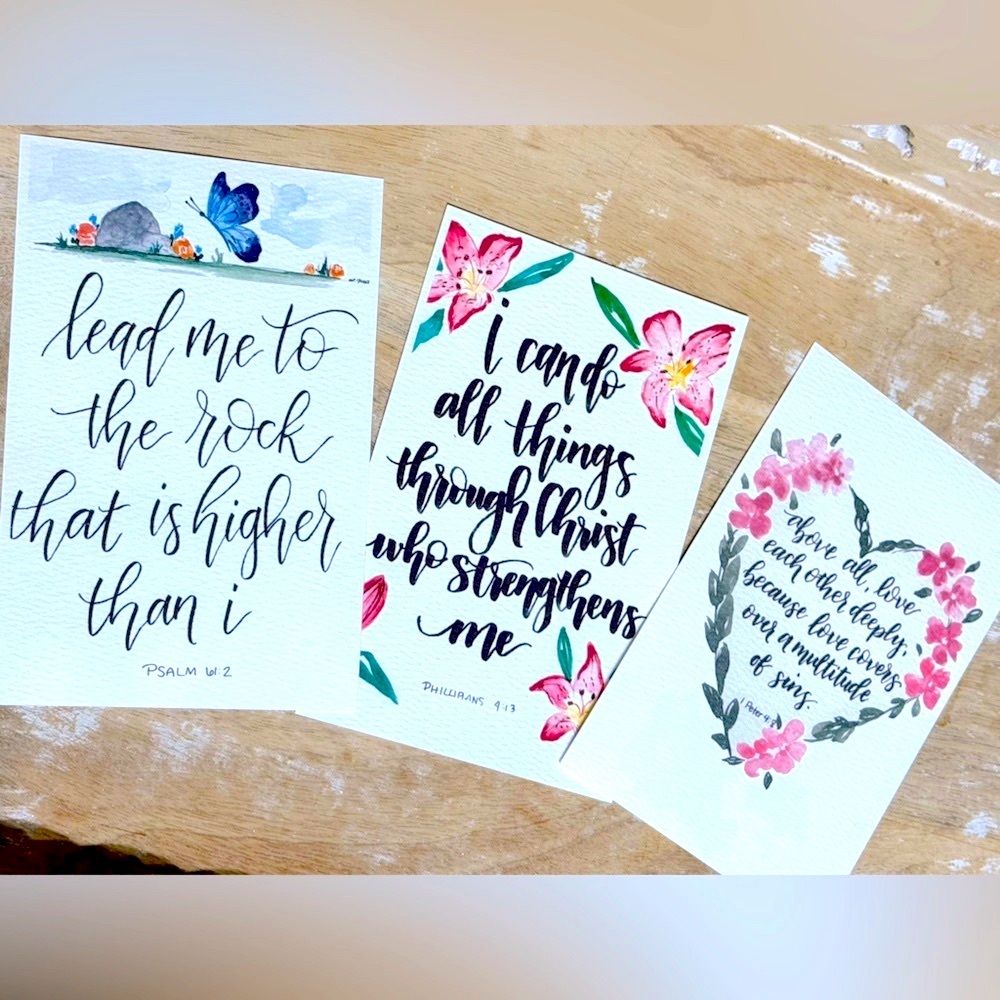 lead me to
the rock
that is higher
than i
PSALM 61:2
i can do
all things
through Christ
who strengthens
me
PHILLIPIANS 4:13
above all, love
each other deeply,
because love covers
over a multitude
of sins.
1 Peter 4:8